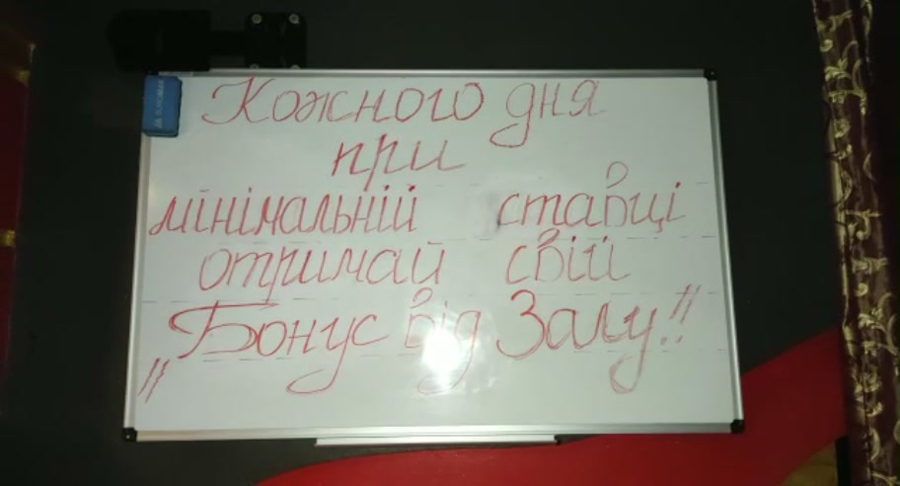 Кожного дня
при
мінімальній ставці
отримай свій
„Бонус від Залу!!"